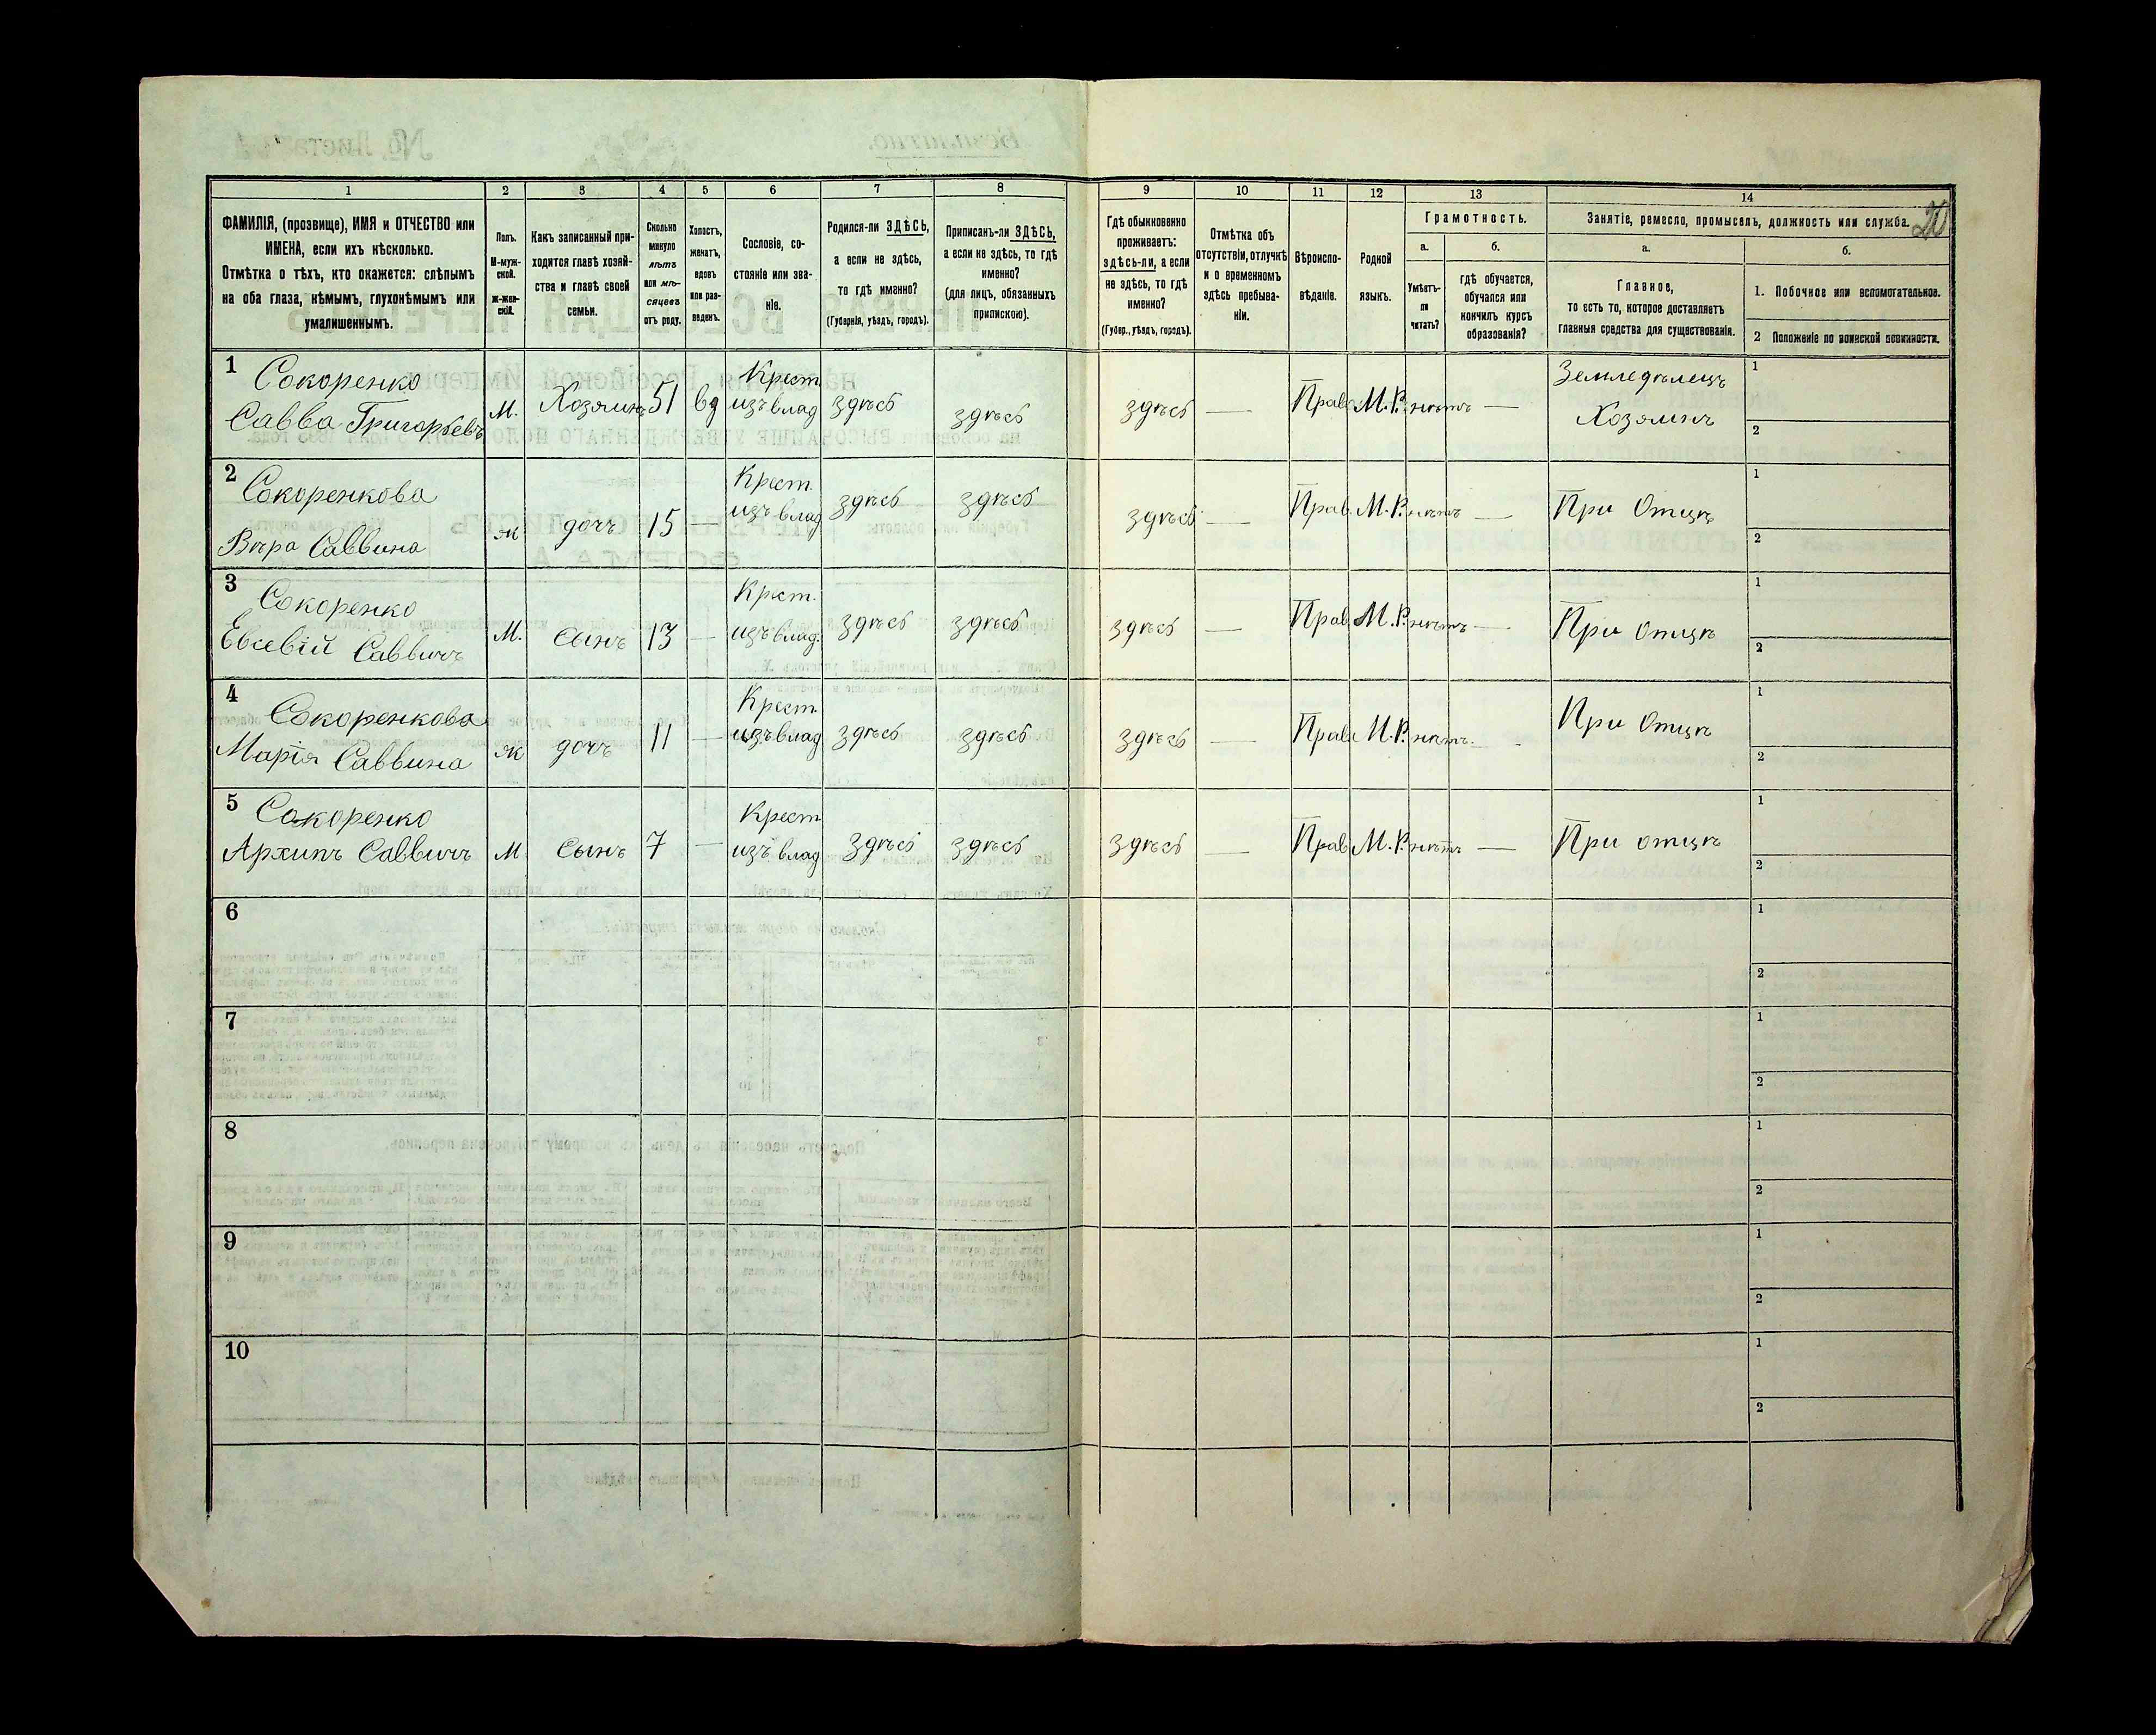 1 2 3 4 5 6 7 8 9 10 11 12 13 14
ФАМИЛІЯ, (прозвище), ИМЯ и ОТЧЕСТВО или
ИМЕНА, если ихъ нѣсколько.
Отмѣтка о тѣхъ, кто окажется: слѣпымъ
на оба глаза, нѣмымъ, глухонѣмымъ или
умалишеннымъ.
Полъ.
М-муж-
ской.
ж-жен-
скій.
Какъ записанный при-
ходится главѣ хозяй-
ства и главѣ своей
семьи.
Сколько
минуло
лѣтъ
или мѣ-
сяцевъ
отъ роду.
Холостъ,
женатъ,
вдовъ
или раз-
веденъ.
Сословіе, со-
стояніе или зва-
ніе.
Родился-ли ЗДѢСЬ,
а если не здѣсь,
то гдѣ именно?
(Губернія, уѣздъ, городъ).
Приписанъ-ли ЗДѢСЬ,
а если не здѣсь, то гдѣ
именно?
(для лицъ, обязанныхъ
припискою).
Гдѣ обыкновенно
проживаетъ:
здѣсь-ли, а если
не здѣсь, то гдѣ
именно?
(Губер., уѣздъ, городъ).
Отмѣтка объ
отсутствіи, отлучкѣ
и о временномъ
здѣсь пребыва-
ніи.
Вѣроиспо-
вѣданіе.
Родной
языкъ.
Грамотность.
а.
Умѣетъ-
ли
читать?
б.
гдѣ обучается,
обучался или
кончилъ курсъ
образованія?
Занятіе, ремесло, промыселъ, должность или служба.
20
а.
Главное,
то есть то, которое доставляетъ
главныя средства для существованія.
б.
1. Побочное или вспомогательное.
2 Положеніе по воинской повинности.
1 Сокоренко Крест. Земледѣлецъ 1
Савва Григорьевъ М. Хозяинъ 51 вд изъ влад здѣсь здѣсь здѣсь — Прав. М.Р. нѣтъ — Хозяинъ 2
2 Сокоренкова Крест. 1
Вѣра Саввина ж дочь 15 — изъ влад здѣсь здѣсь здѣсь — Прав. М.Р. нѣтъ — При Отцѣ 2
3 Сокоренко Крест. 1
Евсевій Саввичъ М. сынъ 13 — изъ влад. здѣсь здѣсь здѣсь — Прав. М.Р. нѣтъ — При отцѣ 2
4 Сокоренкова Крест. 1
Марія Саввина ж дочь 11 — изъ влад здѣсь здѣсь здѣсь — Прав. М.Р. нѣтъ. - При Отцѣ 2
5 Сокоренко Крест 1
Архипъ Саввичъ М сынъ 7 — изъ влад здѣсь здѣсь здѣсь — Прав М.Р. нѣтъ — При отцѣ 2
6 1
2
7 1
2
8 1
2
9 1
2
10 1
2